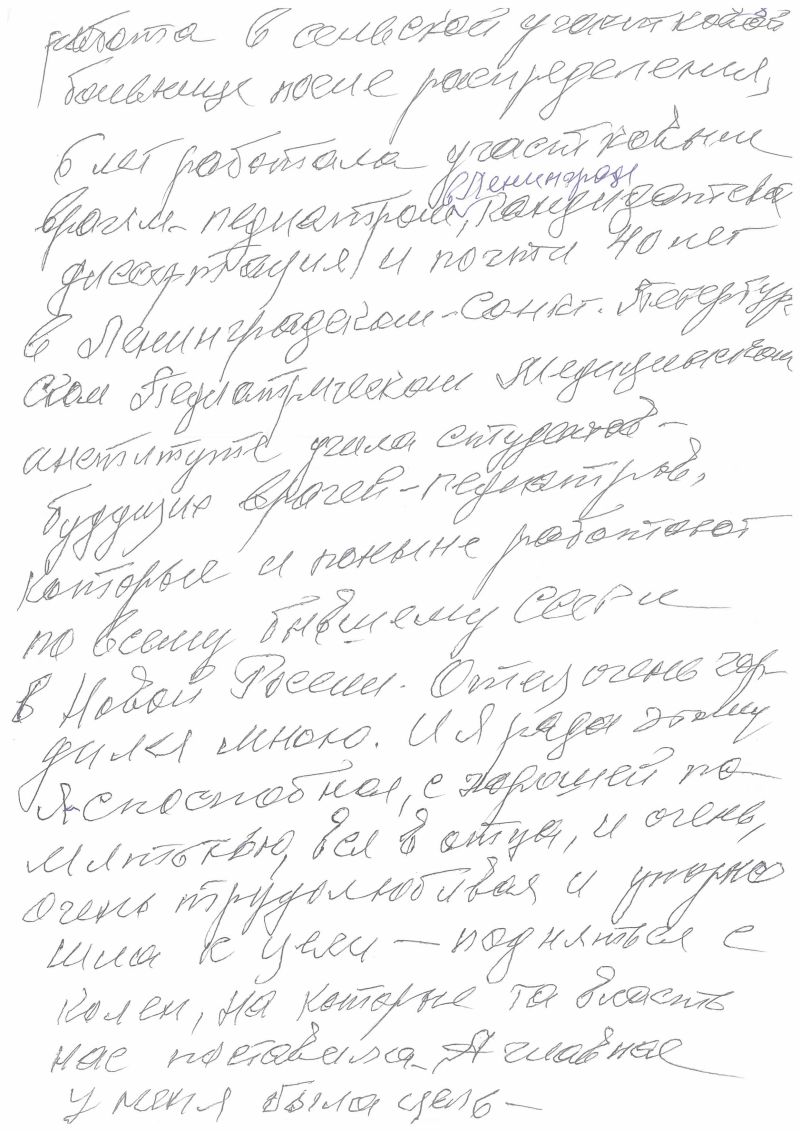 работа в сельской участковой
больнице после распределения,
6 лет работала участковым
в Ленинграде
врачом-педиатром, кандидатская
диссертация и почти 40 лет
в Ленинградском-Санкт-Петербург-
ском Педиатрическом Медицинском
институте учила студентов -
будущих врачей-педиатров,
которые и поныне работают
по всему бывшему СССР и
в Новой России. Отец очень гор-
дился мною. И я рада этому
Я-способная, с хорошей па-
мятью, вся в отца, и очень,
очень трудолюбивая и упорно
шла к цели — подняться с
колен, на которые та власть
нас поставила. А главное
у меня была цель —